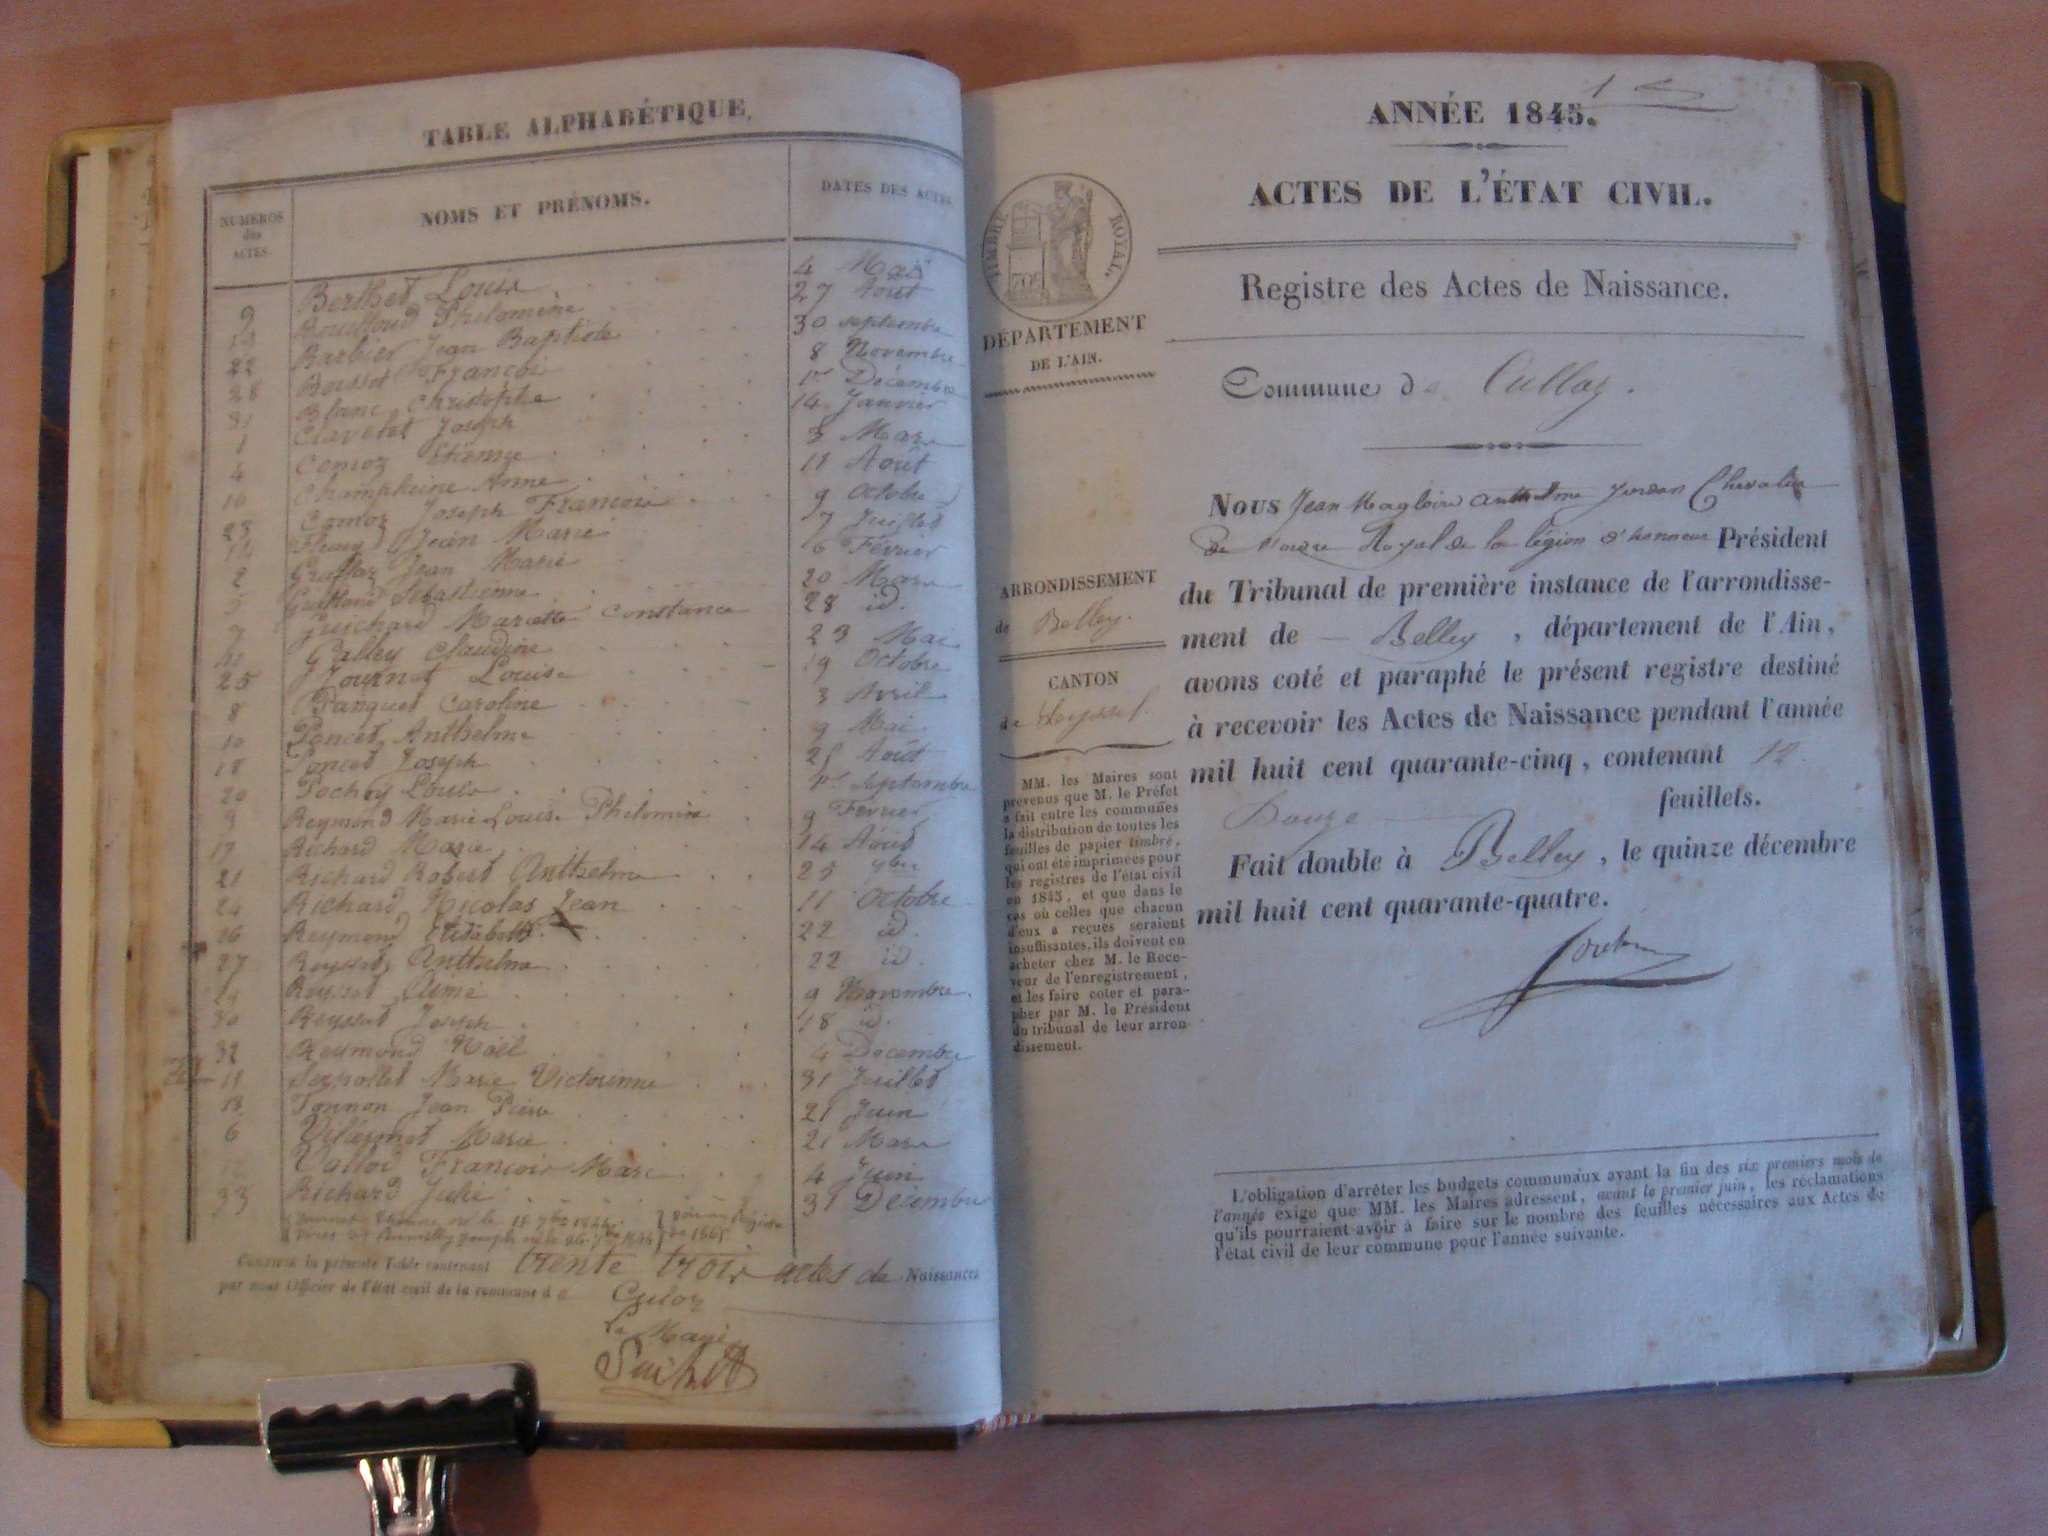 TABLE ALPHABÉTIQUE.
NUMÉROS des ACTES.
NOMS ET PRÉNOMS.
DATES DES ACTES.
9 Berthet Louise 4 Mai
Philomène 27 Août
22 Barbier Jean Baptiste 30 septembre
28 François 8 Novembre
31 Blanc Christophe 1er Décembre
1 Clavetet Joseph 14 Janvier
4 Comoz Étienne 3 Mars
16 Anne 11 Août
23 Comoz Joseph François 9 Octobre
Fleury Jean Marie 7 Juillet
2 Jean Marie 6 Février
5 Sébastienne 20 Mars
7 Guichard Mariette Constance 28 id.
Galley Claudine 23 Mai
25 Journet Louise 19 Octobre
8 Panquet Caroline 3 Avril
10 Poncet Anthelme 9 Mai
18 Poncet Joseph 25 Août
20 Pochoy Louise 1er septembre
3 Reymond Marie Louise Philomène 9 Février
17 Richard Marie 14 Août
21 Richard Robert Anthelme 25 7bre
24 Richard Nicolas Jean 11 Octobre
26 Reymond Elisabeth 22 id.
27 Reysset Anthelme 22 id.
29 Reysset Aimé 9 Novembre
30 Reysset Joseph 18 id.
32 Reymond Noël 4 Décembre
Serpollet Marie Victorinne 31 Juillet
13 Tonnon Jean Pierre 21 Juin
6 Marie 21 Mars
12 Vallod François Marc 4 Juin
33 Richard Julie 31 Décembre
Certifié la présente Table contenant trente trois actes de Naissances
par nous Officier de l'état civil de la commune de Culoz
Le Maire
ANNÉE 1845.
1
ACTES DE L'ÉTAT CIVIL.
TIMBRE ROYAL.
70c
DÉPARTEMENT
DE L'AIN.
Registre des Actes de Naissance.
Commune de Culloz.
Nous Jean Magloire Anthelme Jordan Chevalier
de l'ordre Royal de la légion d'honneur Président
du Tribunal de première instance de l'arrondisse-
ment de Belley, département de l'Ain,
avons coté et paraphé le présent registre destiné
à recevoir les Actes de Naissance pendant l'année
mil huit cent quarante-cinq, contenant 12.
Douze feuillets.
Fait double à Belley, le quinze décembre
mil huit cent quarante-quatre.
ARRONDISSEMENT
de Belley.
CANTON
de Seyssel.
MM. les Maires sont
prévenus que M. le Préfet
a fait entre les communes
la distribution de toutes les
feuilles de papier timbré,
qui ont été imprimées pour
les registres de l'état civil
en 1845, et que dans le
cas où celles que chacun
d'eux a reçues seraient
insuffisantes, ils doivent en
acheter chez M. le Rece-
veur de l'enregistrement,
et les faire coter et para-
pher par M. le Président
du tribunal de leur arron-
dissement.
L'obligation d'arrêter les budgets communaux avant la fin des six premiers mois de
l'année exige que MM. les Maires adressent, avant le premier juin, les réclamations
qu'ils pourraient avoir à faire sur le nombre des feuilles nécessaires aux Actes de
l'état civil de leur commune pour l'année suivante.